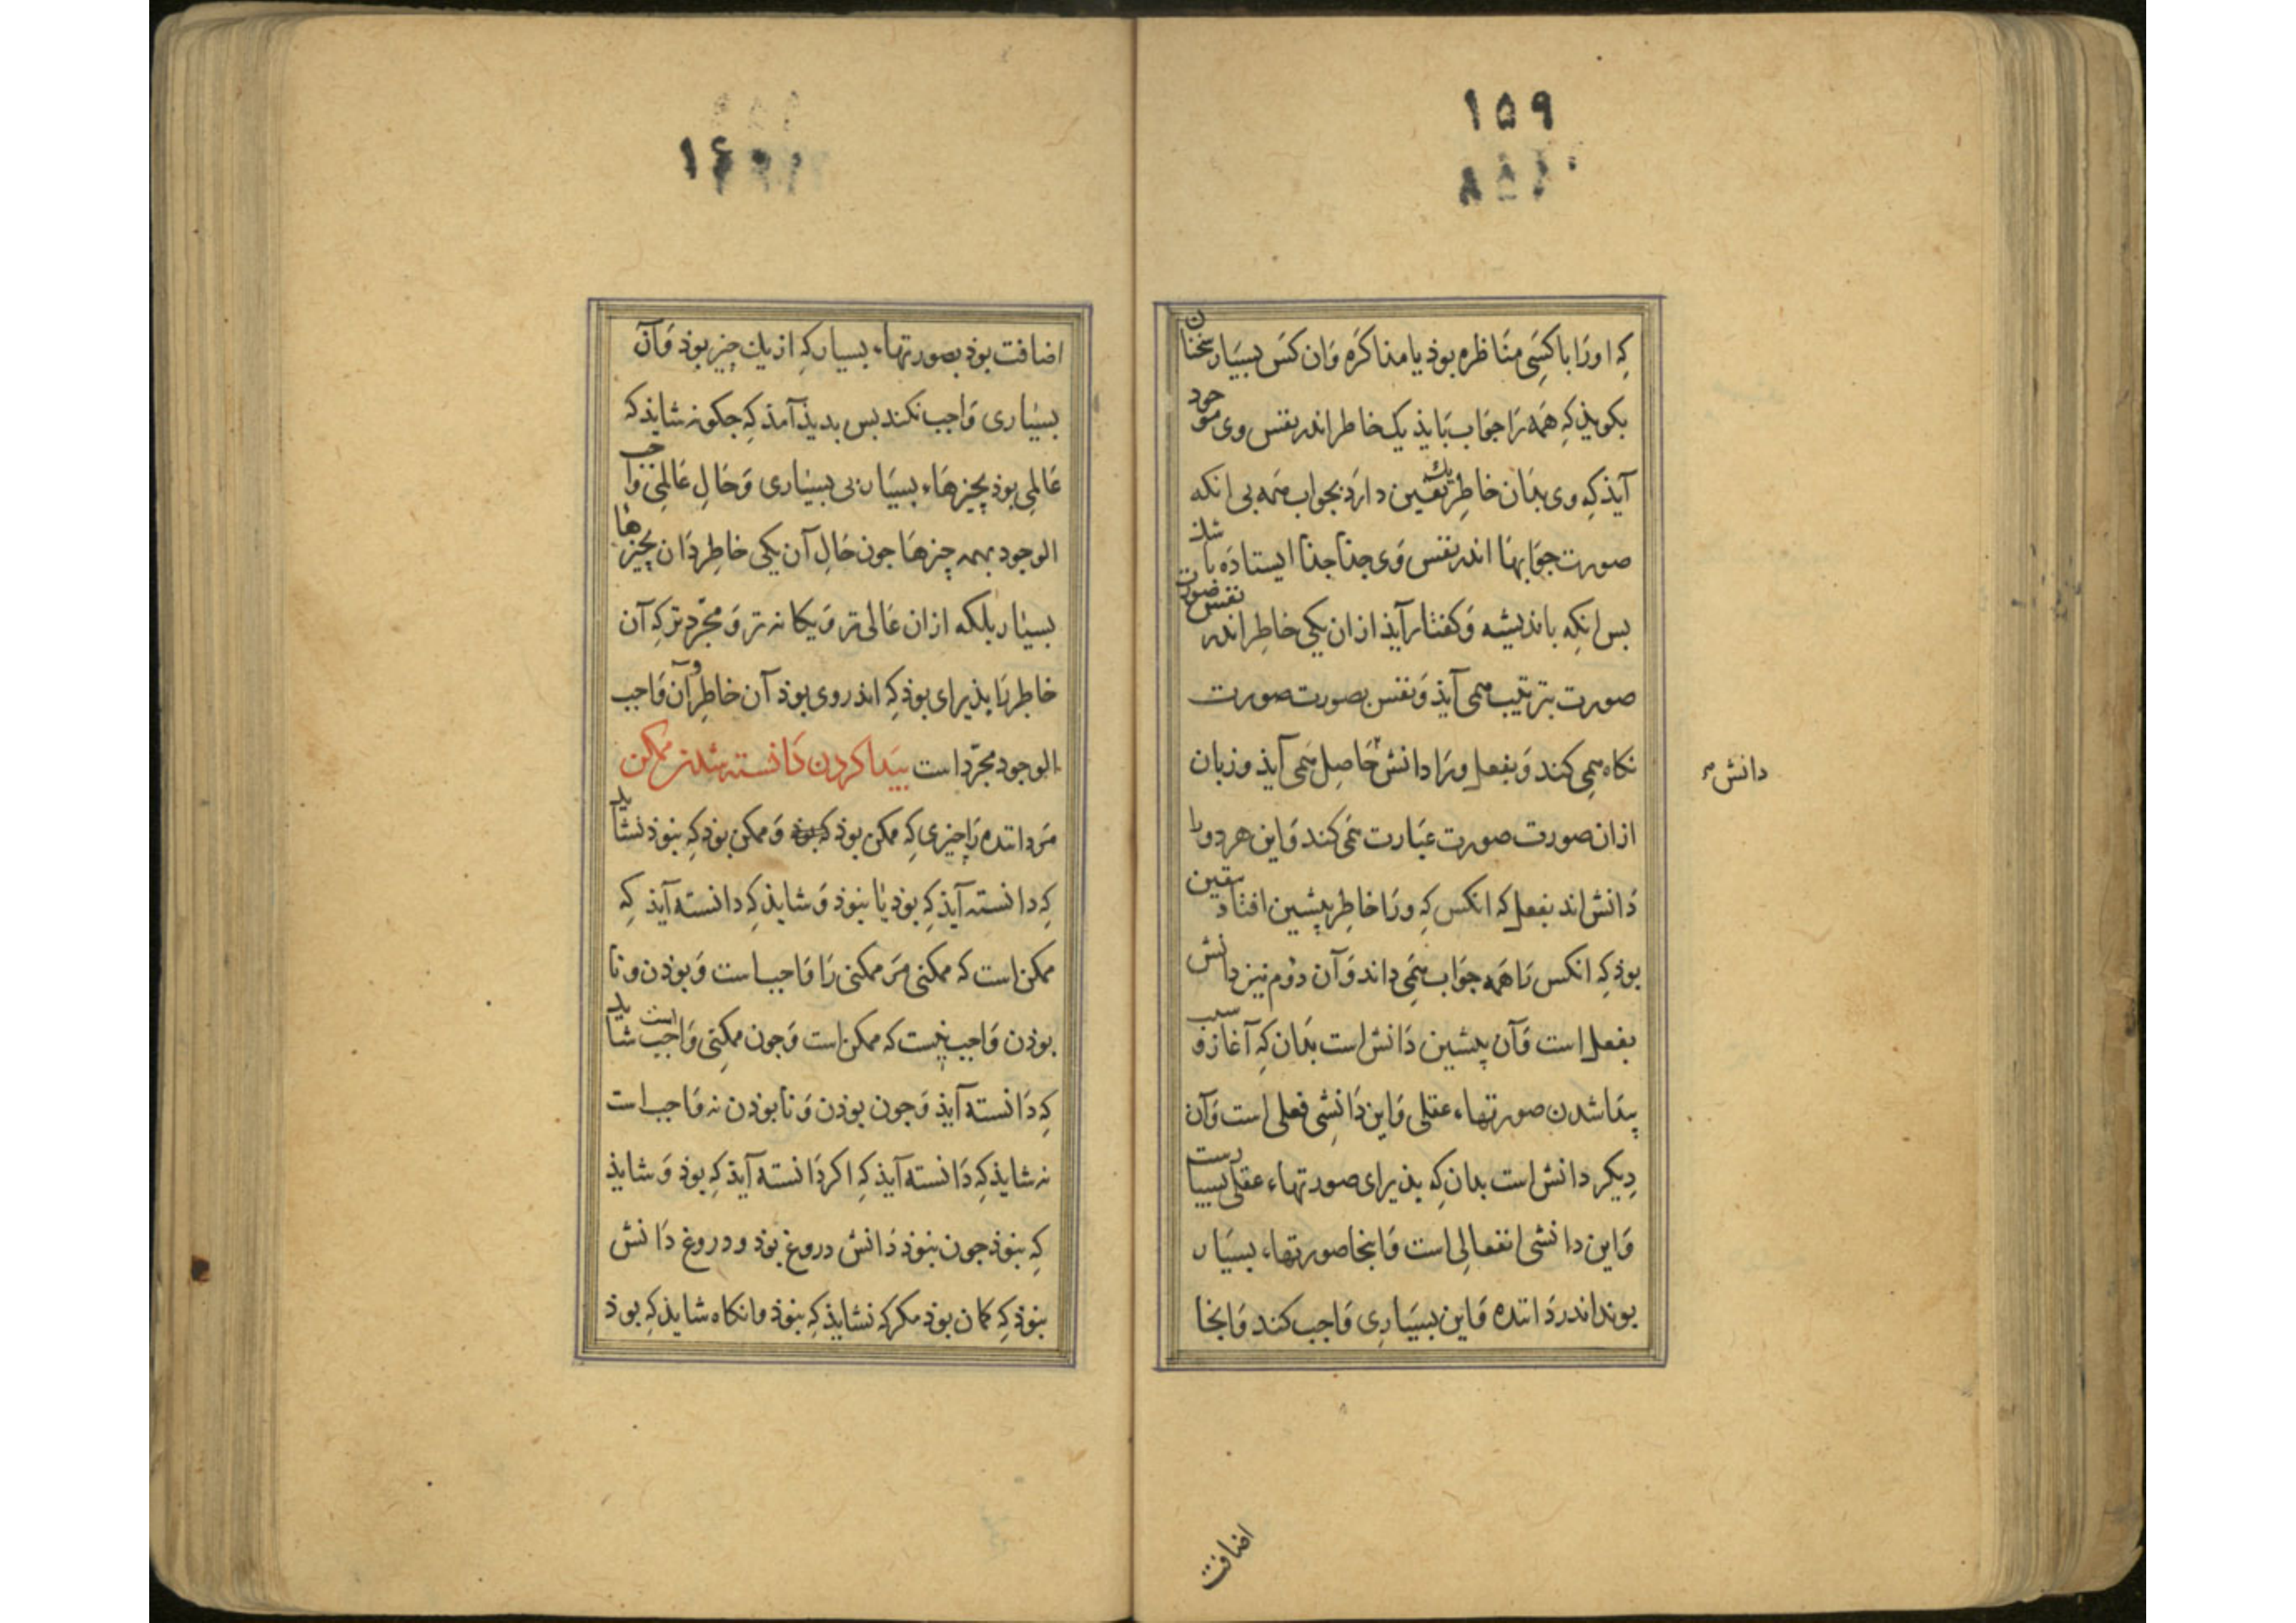 ۱۵۹
که اورا با کسی مناظره بوذ یا مذاکره وان کس بسیار سخنان
بکویذ که همه را جواب بایذ یک خاطر اندر نفس وی موجود
آیذ که وی بذان خاطر یک یقین دارد بجواب همه بی انکه
صورت جوابها اندر نفس وی جذا جذا ایستاده باشذ
بس انکه باندیشه و کفتار آیذ ازان یکی خاطر اندر نفس صورت
صورت بترتیب همی آیذ و نفس بصورت صورت
نکاه همی کند و بفعل ورا دانش حاصل همی آیذ و زبان
دانش
ازان صورت صورت عبارت همی کند و این هر دو را
دانش اند بفعل که انکس که ورا خاطر پیشین افتاد یقین
بوذ که انکس را همه جواب همی داند و آن دوم نیز دانش
بفعل است و آن پیشین دانش است بذان که آغاز و سبب
پیدا شدن صورتهاء عقلی و این دانشی فعلی است و آن
دیکر دانش است بدان که بذیرای صورتهاء عقلی بسیارست
و این دانشی انفعالی است و اینجا صورتهاء بسیار
بوند اندر داننده و این بسیاری واجب کند و اینجا
اضافت
۱۶۰
اضافت بوذ بصورتهاء بسیار که از یک چیز بوذ و آن
بسیاری واجب نکند بس بدیذ آمذ که جکونه شایذ که
عالمی بوذ بچیزهاء بسیار بی بسیاری و حال عالمی واجب
الوجود بهمه چیزها جون حال آن یکی خاطر دان بچیزها
بسیار بلکه ازان عالی تر و یکانه تر و مجرد تر که آن
خاطر را بذیرای بوذ که اندر وی بوذ آن خاطر و آن واجب
الوجود مجرد است پیدا کردن دانسته شدن ممکن
مر داننده را چیزی که ممکن بوذ که بوذ و ممکن بوذ که نبوذ نشاید
که دانسته آیذ که بوذ یا نبوذ و شایذ که دانسته آیذ که
ممکن است که ممکنی مر ممکنی را واجب است و بوذن و نا
بوذن واجب نیست که ممکن است و جون ممکنی واجب است شاید
که دانسته آیذ و جون بوذن و نابوذن نه واجب است
نه شایذ که دانسته آیذ که اکر دانسته آیذ که بوذ و شایذ
که نبوذ جون نبوذ دانش دروغ بوذ و دروغ دانش
نبوذ که کمان بوذ مکر که نشایذ که نبوذ وانکاه شایذ که بوذ